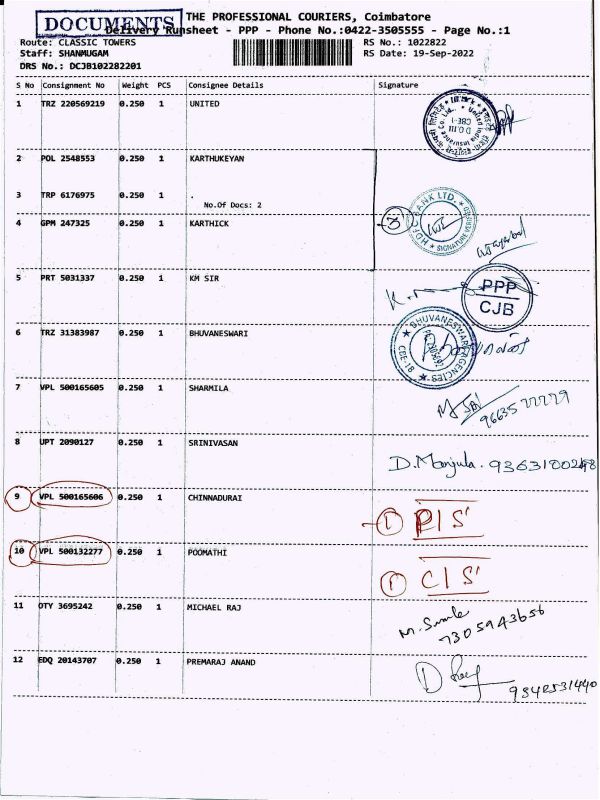 DOCUMENTS
THE PROFESSIONAL COURIERS, Coimbatore
Delivery Runsheet - PPP - Phone No.:0422-3505555 - Page No.:1
Route: CLASSIC TOWERS RS No.: 1022822
Staff: SHANMUGAM RS Date: 19-Sep-2022
DRS No.: DCJB102282201
S No Consignment No Weight PCS Consignee Details Signature
1 TRZ 220569219 0.250 1 UNITED
2 POL 2548553 0.250 1 KARTHUKEYAN
3 TRP 6176975 0.250 1 .
No.Of Docs: 2
HDFC BANK LTD. SIGNATURE VERIFIED
4 GPM 247325 0.250 1 KARTHICK
5 PRT 5031337 0.250 1 KM SIR
PPP
CJB
6 TRZ 31383987 0.250 1 BHUVANESWARI
BHUVANESWARI AGENCIES CBE-18
7 VPL 500165605 0.250 1 SHARMILA
9663522229
8 UPT 2090127 0.250 1 SRINIVASAN
D. Manjula.
9 VPL 500165606 0.250 1 CHINNADURAI
① P/S'
10 VPL 500132277 0.250 1 POOMATHI
① C/S'
11 OTY 3695242 0.250 1 MICHAEL RAJ
7305943656
12 EDQ 20143707 0.250 1 PREMARAJ ANAND
9342531440